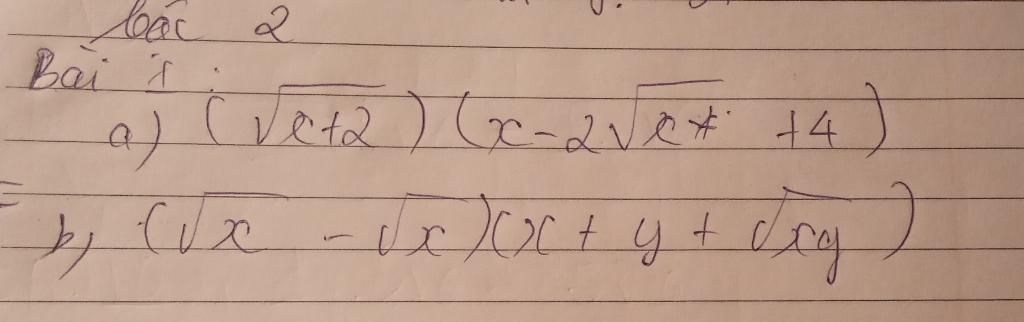 bậc 2
Bài 1:
a) (√x+2)(x-2√x +4)
= b) (√x - √x)(x + y + √xy)